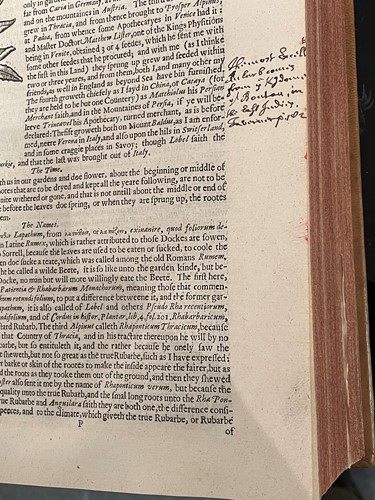 only
far from Caria in Germany,
and on the mountaines in Austria. The third
grew in Thracia, and from thence brought to Prosper Alpinus,
at Padua, from whence some Apothecaries in Venice had it:
and Master Doctor, Matthew Lister, one of the Kings Physitions
being in Venice, obtained 3 or 4 seedes, which he sent me with
some other seedes that he procured, and with me (as I thinke
the first in this Land) they sprung up grew and seeded within
two or three yeares, and from them, both I, and many other my
friends, as well in England as beyond Sea have bin furnished,
The fourth groweth chiefly as I sayd in China, or Catayo (for
they are held to be but one Country) as Matthiolus his Persian
Merchant saith, and in the Mountaines of Persia, if ye will be-
leeve Trincavel his Apothecary, turned merchant, as is before
declared: The fift groweth both on Mount Baldus, as I am enfor-
med, neere Verona in Italy, and also upon the hils in Switserland,
and in some craggie places in Savoy; though Lobel saith the
and that the last was brought out of Italy.
The Time.
th us in our gardens and doe flower, about the beginning or middle of
ootes that are to be dryed and kept all the yeare following, are not to be
uite withered or gone, and that is not untill about the middle or end of
e before the leaves doe spring, or when they are sprung up, the rootes
em.
The Names.
Lapathum, from exinanire, quod foliorum de-
n Latine Rumex, which is rather attributed to those Dockes are sowen,
Sorrell, because the leaves are used to be eaten or sucked, to coole the
en doe sucke a teate, which was called among the old Romans Rumem,
ght be called a wilde Beete, it is so like unto the garden kinde, but be-
Docke, no man but will more willingly eate the Beete. The first here,
Patientia & Rhabarbarum Monachorum, meaning those that commen-
num rotundifolium, to put a difference betweene it, and the former gar-
apathum, it is also called of Lobel and others Pseudo Rha recentiorum,
undifolium, and of Cordus in histor, Plantar, lib, 4. fol. 201. Rhabarbari-
hard Rubarb. The third Alpinus calleth Rhaponticum Thracicum, because
that Country of Thracia, and in his tractate thereupon he will by no
arbe, but so entituleth it, and the rather because he onely saw the
sheweth, but not so great as the true Rubarbe, such as I have expressed:
barke or skin of the rootes to make the inside appeare the fairer, but as
d the roots as they tooke them out of the ground, and then they shewed
also sent it me by the name of Rhaponticum verum, but because the
quality unto the true Rubarbe, and the smal long roots unto the Rha Pon-
rue Rubarbe and Anguilara saith they are both one, the difference consi-
peeces, and to the climate, which giveth the true Rubarbe, or Rubarbe
P of